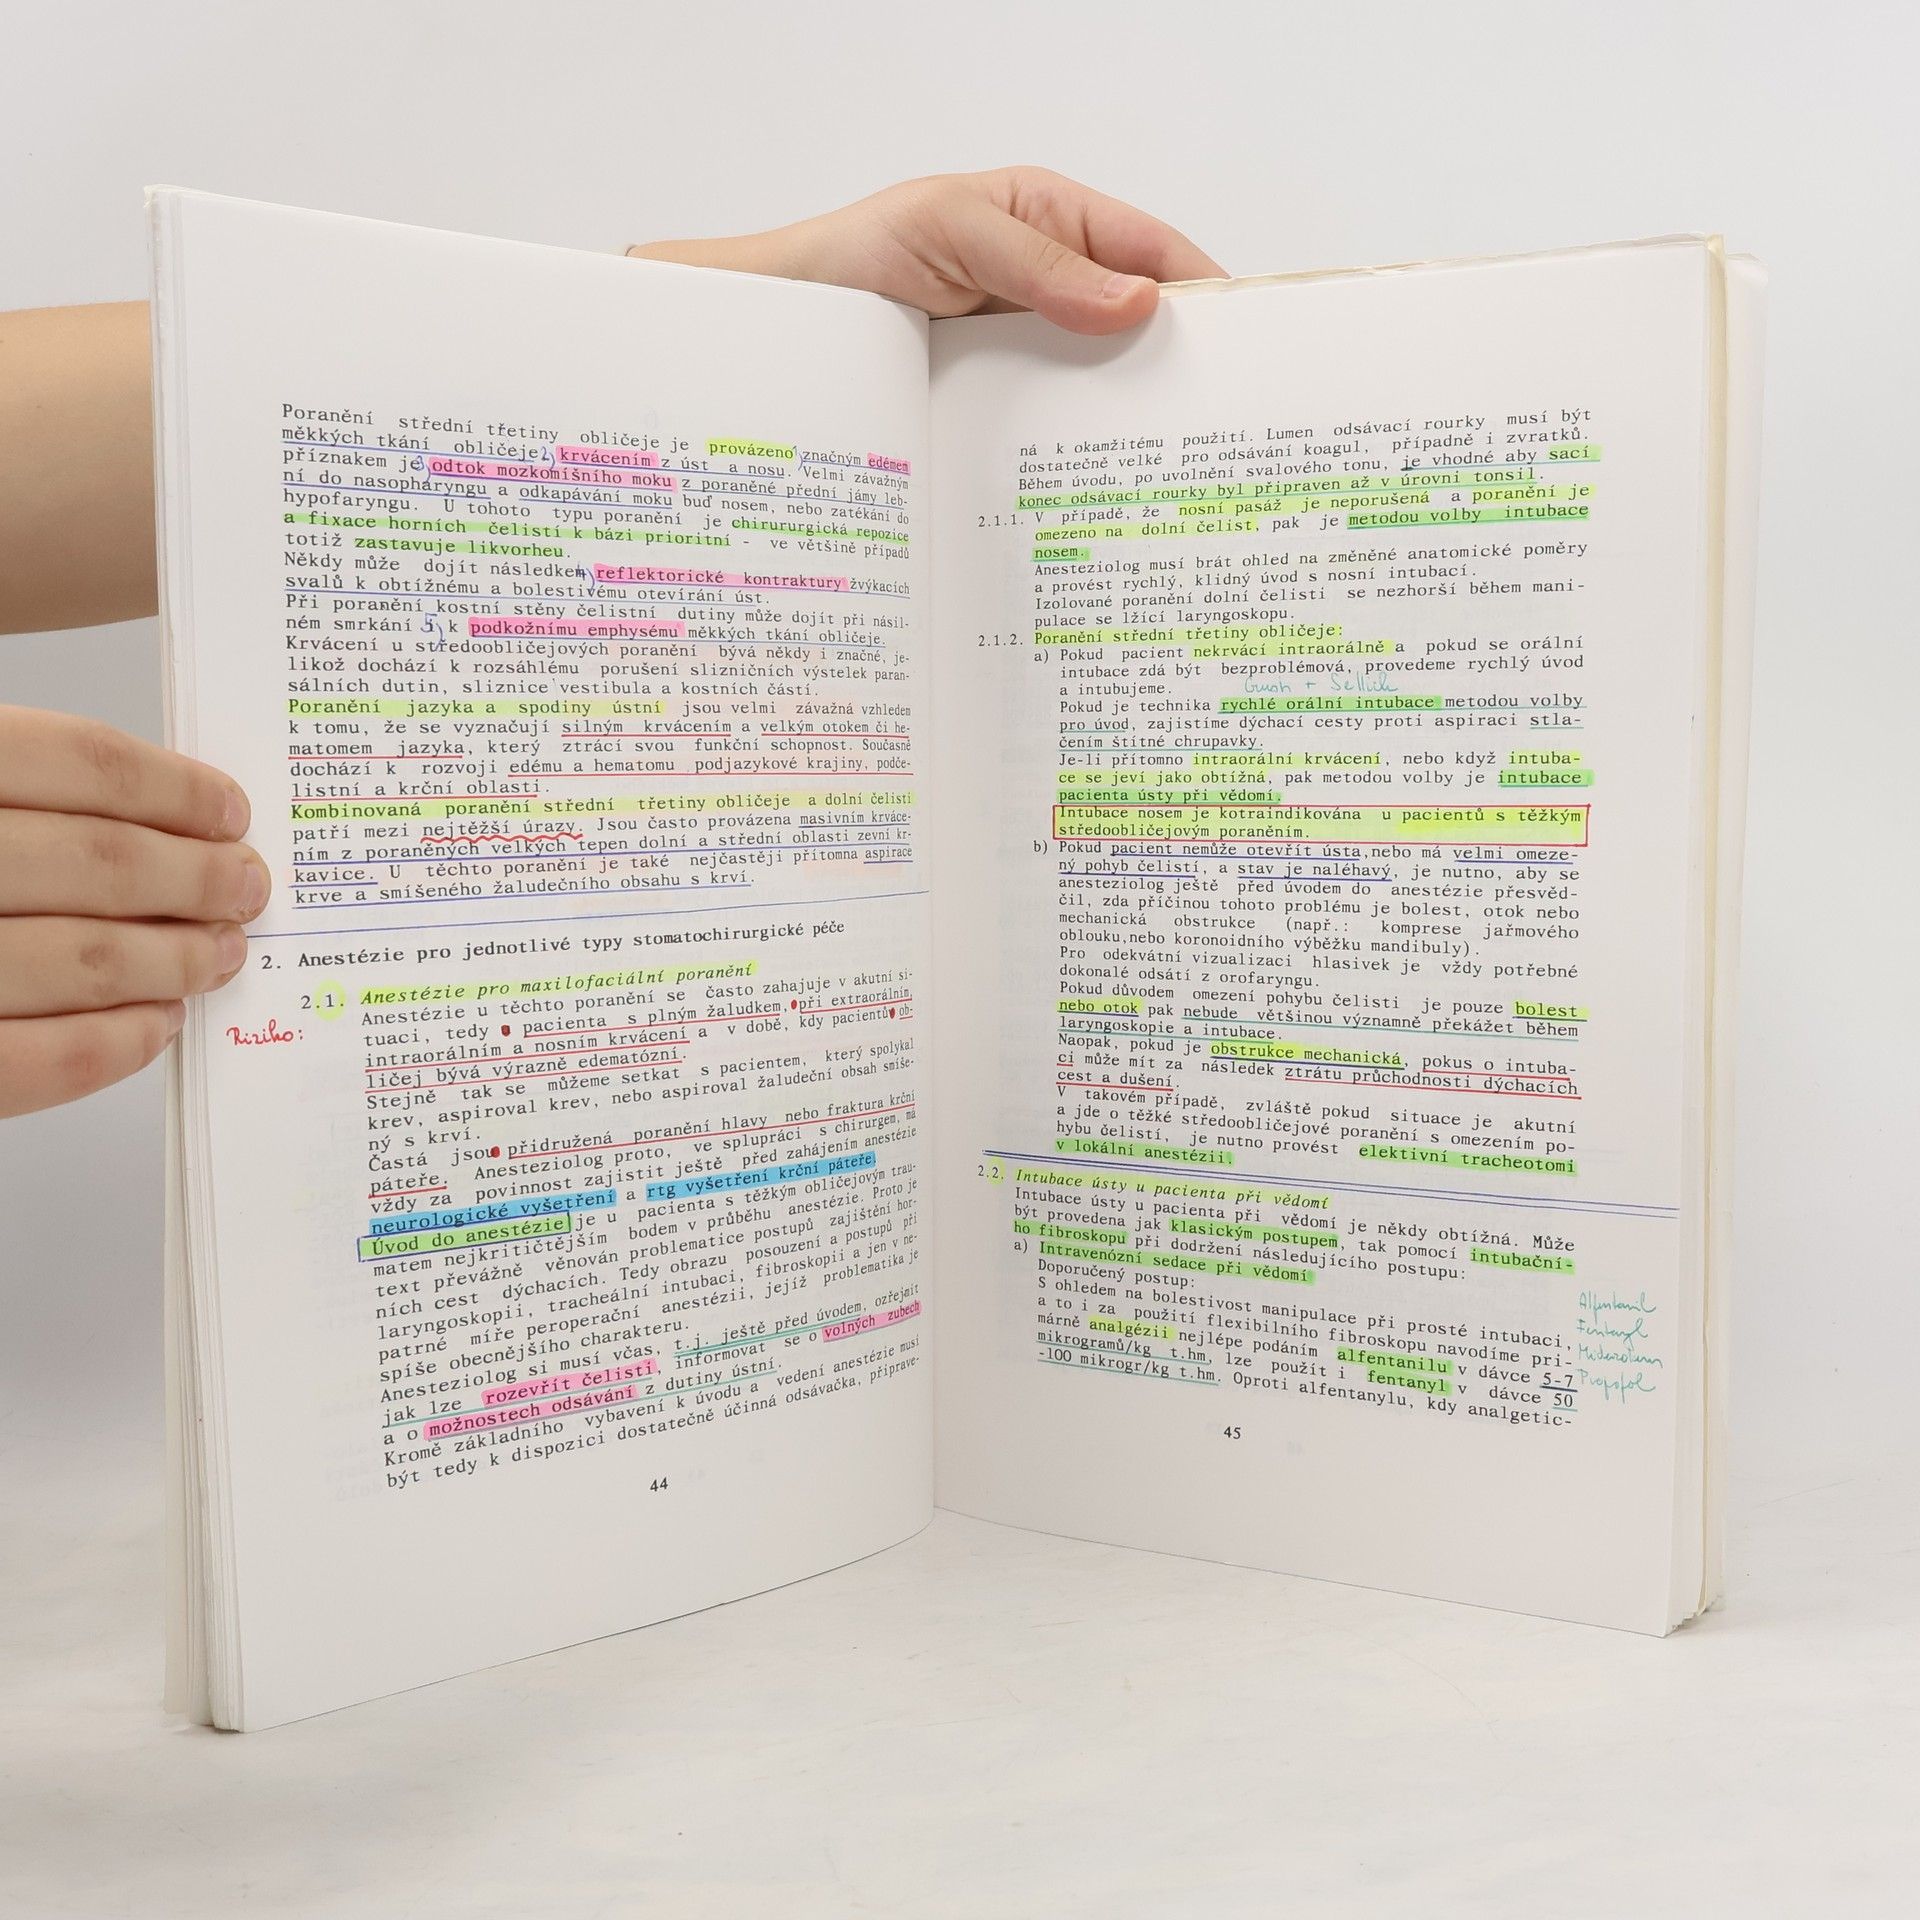 Poranění střední třetiny obličeje je provázeno 1) značným edémem
měkkých tkání obličeje 2) krvácením z úst a nosu. Velmi závažným
příznakem je 3) odtok mozkomíšního moku z poraněné přední jámy leb-
ní do nasopharyngu a odkapávání moku buď nosem, nebo zatékání do
hypofaryngu. U tohoto typu poranění je chirururgická repozice
a fixace horních čelistí k bázi prioritní - ve většině případů
totiž zastavuje likvorheu.
Někdy může dojít následkem 4) reflektorické kontraktury žvýkacích
svalů k obtížnému a bolestivému otevírání úst.
Při poranění kostní stěny čelistní dutiny může dojít při násil-
ném smrkání 5) k podkožnímu emphysému měkkých tkání obličeje.
Krvácení u středoobličejových poranění bývá někdy i značné, je-
likož dochází k rozsáhlému porušení slizničních výstelek paran-
sálních dutin, sliznice vestibula a kostních částí.
Poranění jazyka a spodiny ústní jsou velmi závažná vzhledem
k tomu, že se vyznačují silným krvácením a velkým otokem či he-
matomem jazyka, který ztrácí svou funkční schopnost. Současně
dochází k rozvoji edému a hematomu podjazykové krajiny, podče-
listní a krční oblasti.
Kombinovaná poranění střední třetiny obličeje a dolní čelisti
patří mezi nejtěžší úrazy. Jsou často provázena masivním krváce-
ním z poraněných velkých tepen dolní a střední oblasti zevní kr-
kavice. U těchto poranění je také nejčastěji přítomna aspirace
krve a smíšeného žaludečního obsahu s krví.
2. Anestézie pro jednotlivé typy stomatochirurgické péče
2.1. Anestézie pro maxilofaciální poranění
Riziko:
Anestézie u těchto poranění se často zahajuje v akutní si-
tuaci, tedy pacienta s plným žaludkem, při extraorálním,
intraorálním a nosním krvácení a v době, kdy pacientů ob-
ličej bývá výrazně edematózní.
Stejně tak se můžeme setkat s pacientem, který spolykal
krev, aspiroval krev, nebo aspiroval žaludeční obsah smíše-
ný s krví.
Častá jsou přidružená poranění hlavy nebo fraktura krční
páteře. Anesteziolog proto, ve splupráci s chirurgem, má
vždy za povinnost zajistit ještě před zahájením anestézie
neurologické vyšetření a rtg vyšetření krční páteře.
Úvod do anestézie je u pacienta s těžkým obličejovým trau-
matem nejkritičtějším bodem v průběhu anestézie. Proto je
text převážně věnován problematice postupů zajištění hor-
ních cest dýchacích. Tedy obrazu posouzení a postupů při
laryngoskopii, tracheální intubaci, fibroskopii a jen v ne-
patrné míře peroperační anestézii, jejíž problematika je
spíše obecnějšího charakteru.
Anesteziolog si musí včas, t.j. ještě před úvodem, ozřejmit
jak lze rozevřít čelisti, informovat se o volných zubech
a o možnostech odsávání z dutiny ústní.
Kromě základního vybavení k úvodu a vedení anestézie musí
být tedy k dispozici dostatečně účinná odsávačka, připrave-
44
ná k okamžitému použití. Lumen odsávací rourky musí být
dostatečně velké pro odsávání koagul, případně i zvratků.
Během úvodu, po uvolnění svalového tonu, je vhodné aby sací
konec odsávací rourky byl připraven až v úrovni tonsil.
2.1.1. V případě, že nosní pasáž je neporušená a poranění je
omezeno na dolní čelist, pak je metodou volby intubace
nosem.
Anesteziolog musí brát ohled na změněné anatomické poměry
a provést rychlý, klidný úvod s nosní intubací.
Izolované poranění dolní čelisti se nezhorší během mani-
pulace se lžící laryngoskopu.
2.1.2. Poranění střední třetiny obličeje:
a) Pokud pacient nekrvácí intraorálně a pokud se orální
intubace zdá být bezproblémová, provedeme rychlý úvod
a intubujeme.
Pokud je technika rychlé orální intubace metodou volby
pro úvod, zajistíme dýchací cesty proti aspiraci stla-
čením štítné chrupavky.
Je-li přítomno intraorální krvácení, nebo když intuba-
ce se jeví jako obtížná, pak metodou volby je intubace
pacienta ústy při vědomí.
Intubace nosem je kotraindikována u pacientů s těžkým
středoobličejovým poraněním.
b) Pokud pacient nemůže otevřít ústa,nebo má velmi omeze-
ný pohyb čelistí, a stav je naléhavý, je nutno, aby se
anesteziolog ještě před úvodem do anestézie přesvěd-
čil, zda příčinou tohoto problému je bolest, otok nebo
mechanická obstrukce (např.: komprese jařmového
oblouku,nebo koronoidního výběžku mandibuly).
Pro odekvátní vizualizaci hlasivek je vždy potřebné
dokonalé odsátí z orofaryngu.
Pokud důvodem omezení pohybu čelisti je pouze bolest
nebo otok pak nebude většinou významně překážet během
laryngoskopie a intubace.
Naopak, pokud je obstrukce mechanická, pokus o intuba-
ci může mít za následek ztrátu průchodnosti dýchacích
cest a dušení.
V takovém případě, zvláště pokud situace je akutní
a jde o těžké středoobličejové poranění s omezením po-
hybu čelistí, je nutno provést elektivní tracheotomi
v lokální anestézii.
2.2. Intubace ústy u pacienta při vědomí
Intubace ústy u pacienta při vědomí je někdy obtížná. Může
být provedena jak klasickým postupem, tak pomocí intubační-
ho fibroskopu při dodržení následujícího postupu:
a) Intravenózní sedace při vědomí
Doporučený postup:
S ohledem na bolestivost manipulace při prosté intubaci,
a to i za použití flexibilního fibroskopu navodíme pri-
márně analgézii nejlépe podáním alfentanilu v dávce 5-7
mikrogramů/kg t.hm, lze použít i fentanyl v dávce 50
-100 mikrogr/kg t.hm. Oproti alfentanylu, kdy analgetic-
Alfentanil
Fentanyl
Midazolam
Propofol
45